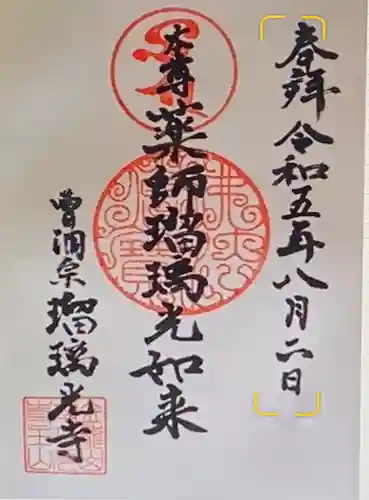 奉拝 令和五年八月六日
本尊 薬師瑠璃光如来
曹洞宗 瑠璃光寺